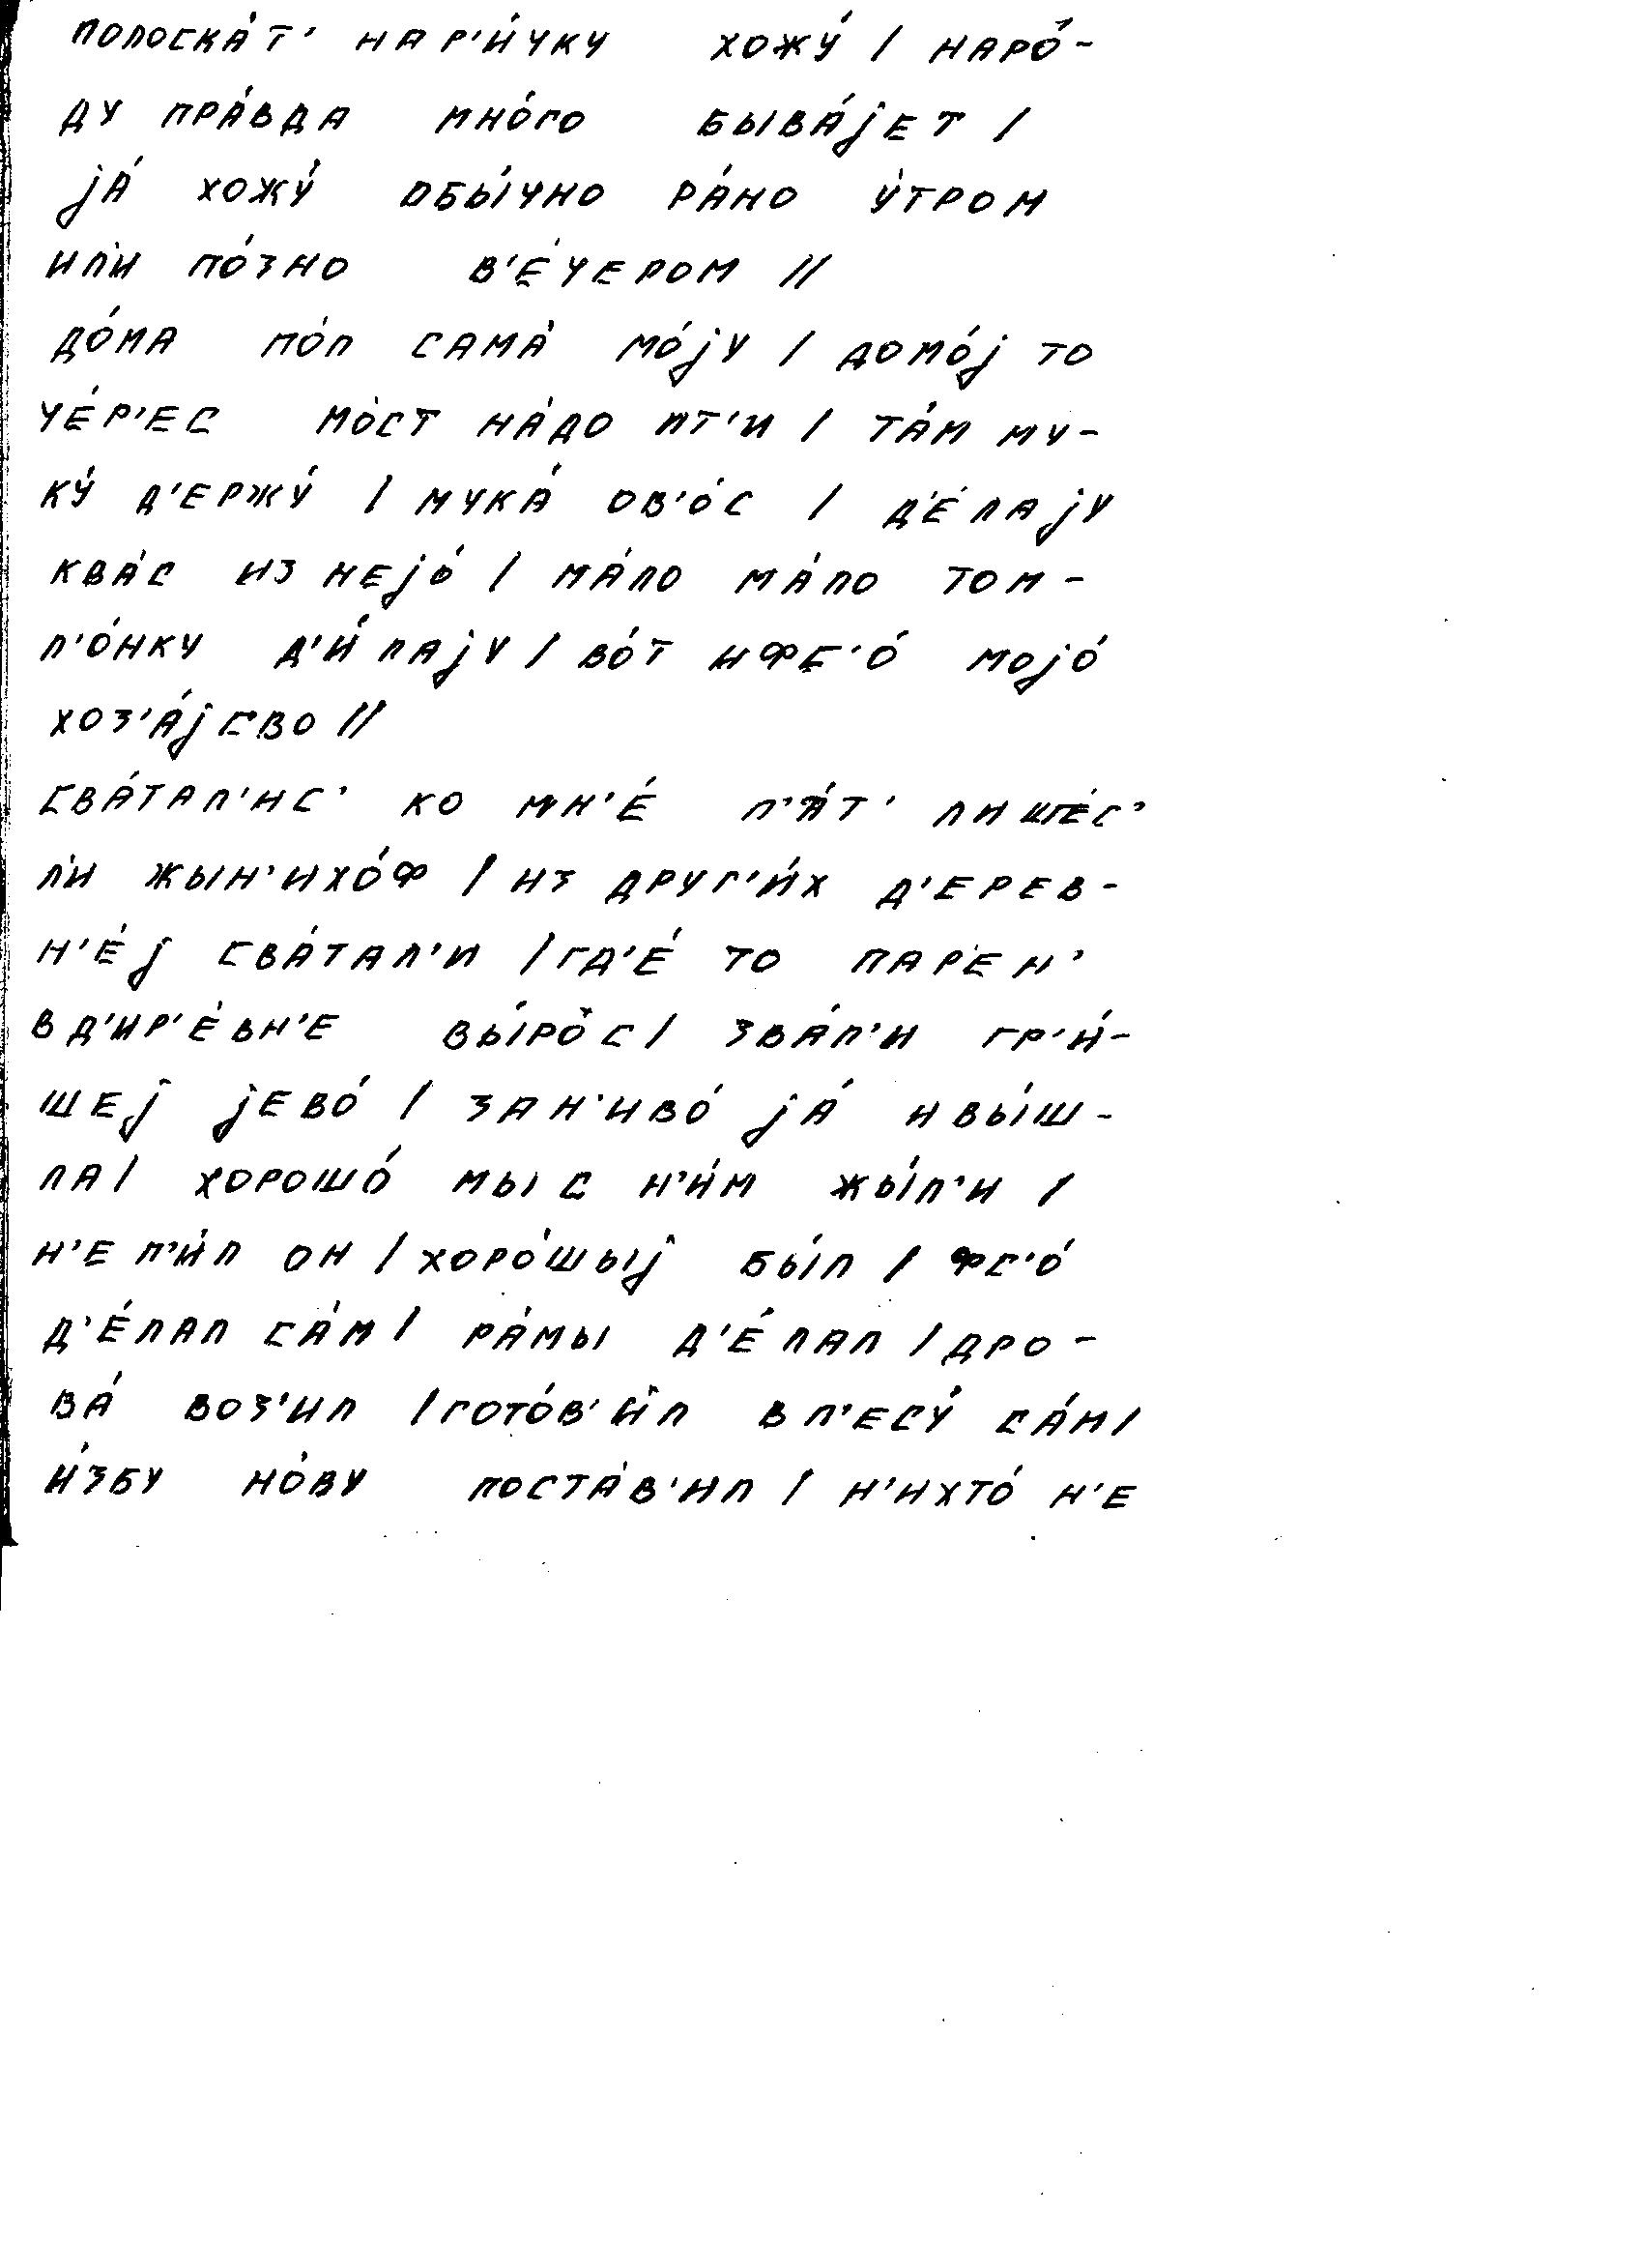 ПОЛОСКА́Т' НАР'И́ЧКУ ХОЖУ́ / НАРО́-
ДУ ПРА́ВДА МНО́ГО БЫВА́JЕТ /
JА́ ХОЖУ́ ОБЫ́ЧНО РА́НО У́ТРОМ
ИЛ'И ПО́ЗНО В'Е́ЧЕРОМ //
ДО́МА ПО́Л САМА́ МО́JУ / ДОМО́J ТО
ЧЕ́Р'ЕС МО́СТ НА́ДО ПТ'И / ТА́М МУ-
КУ́ Д'ЕРЖУ́ / МУКА́ ОВ'О́С / Д'Е́ЛАJУ
КВА́С ИЗ НЕJО́ / МА́ЛО МА́ЛО ТОМ-
Л'О́НКУ Д'И́ЛАJУ / ВО́Т ИФС'О́ МОJО́
ХОЗ'А́JСВО //
СВА́ТАЛ'ИС' КО МН'Е́ П'А́Т' ЛИ ШЕ́С'
Л'И ЖЫН'ИХО́Ф / ИЗ ДРУГ'И́Х Д'ЕРЕВ-
Н'Е́J СВА́ТАЛ'И / ГД'Е́ ТО ПАР'ЕН'
ВД'ИР'Е́ВН'Е ВЫ́РОС / ЗВА́Л'И ГР'И́-
ШЕJ JЕВО́ / ЗАН'ИВО́ JА́ ИВЫ́Ш-
ЛА / ХОРОШО́ МЫ С Н'И́М ЖЫ́Л'И /
Н'Е П'И́Л ОН / ХОРО́ШЫJ БЫ́Л / ФС'О́
Д'Е́ЛАЛ СА́М / РА́МЫ Д'Е́ЛАЛ / ДРО-
ВА́ ВОЗ'ИЛ / ГОТО́В'ИЛ В Л'ЕСУ́ СА́М /
И́ЗБУ НО́ВУ ПОСТА́В'ИЛ / Н'ИХТО́ Н'Е